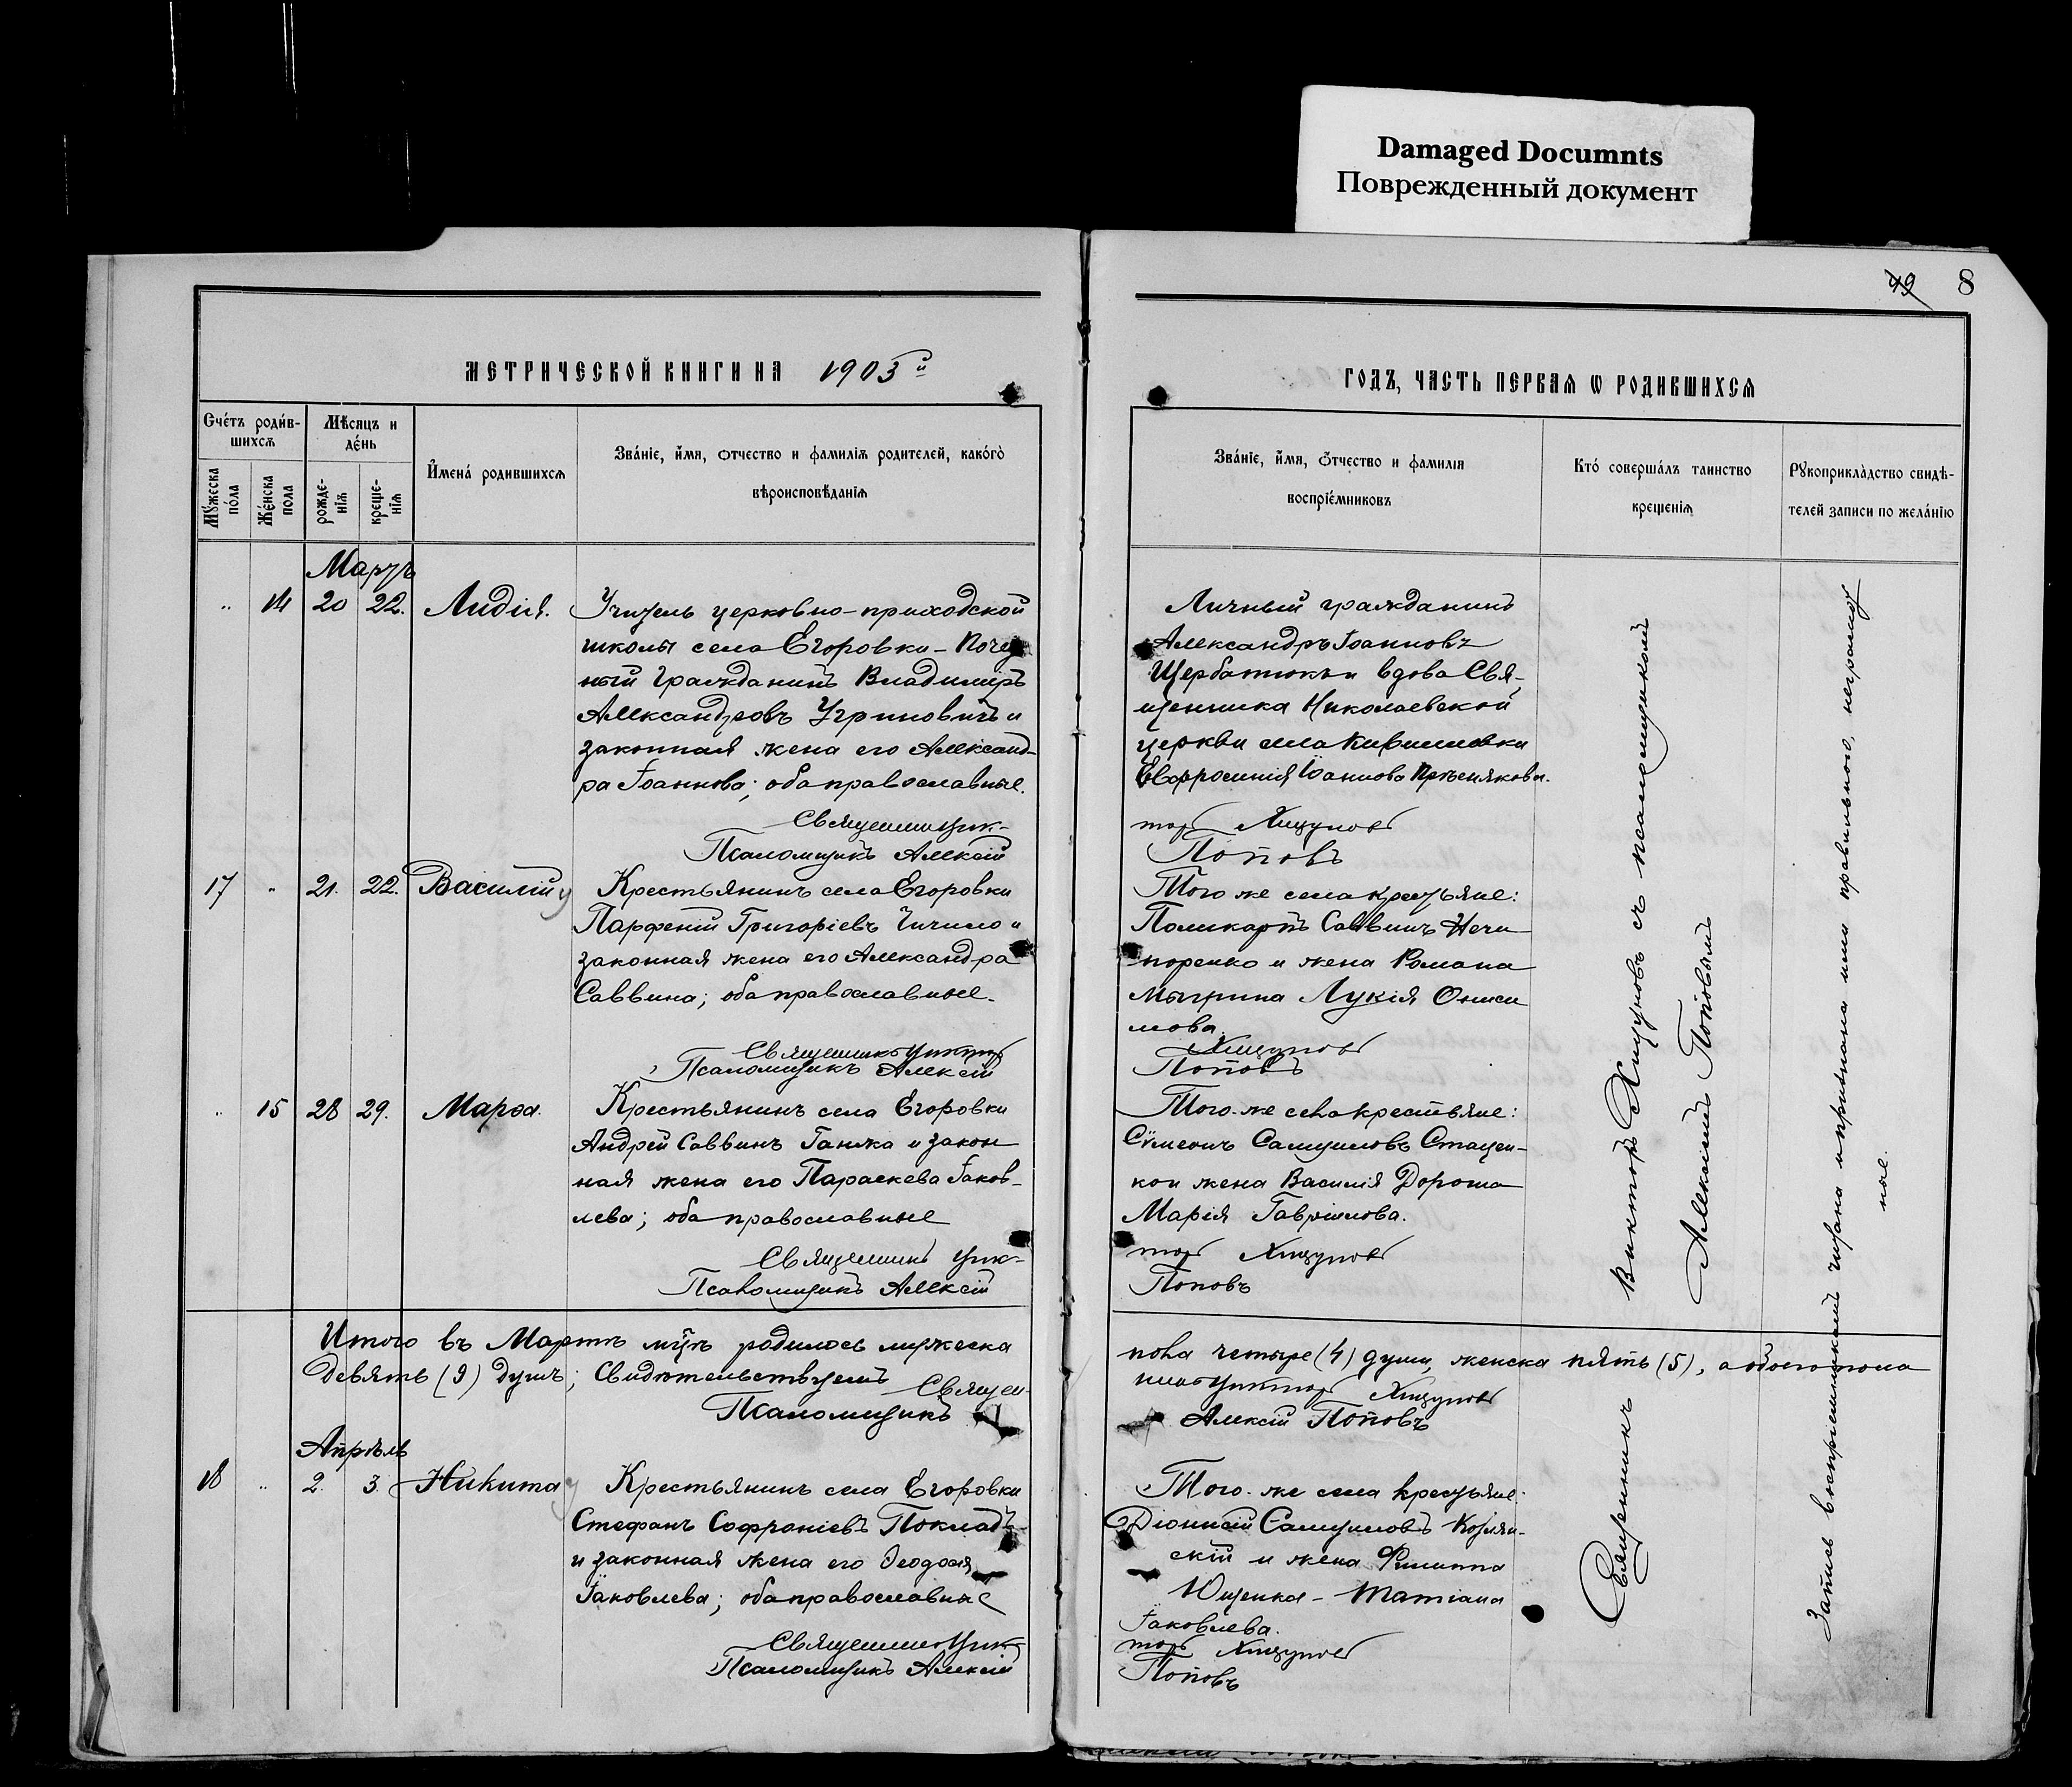 Damaged Documnts
Поврежденный документ
49 8
МЕТРИЧЕСКОЙ КНИГИ НА 1903й
ГОДЪ, ЧАСТЬ ПЕРВАЯ Ѡ РОДИВШИХСЯ
Счétъ роди́в-
шихсѧ
Мѣсяцъ и
де́нь
Мꙋжеска
по́ла
Же́нска
пола
рожде-
нїѧ
креще-
нїѧ
И҆мена́ родившихсѧ
Зва́нїе, и҆́мя, ѻтчество и фамилїѧ родителей, како́гѡ
вѣроисповѣ́данїѧ
Зва́нїе, и҆́мя, ѻ҆тчество и фамилїя
воспрїе́мниковъ
Кто́ соверша́лъ таинство
крещенїѧ
Рꙋкоприкла́дство свидѣ-
телей записи по жела́нїю
Мартъ
" 14 20 22. Лидія.
Учитель церковно-приходской
школы села Егоровки - Почет
ный Гражданинъ Владиміръ
Александровъ Угриновичъ и
законная жена его Александ-
ра Іоаннова; оба православные.
Священникъ Вик-
Псаломщикъ Алексій
Личный гражданинъ
Александръ Іоанновъ
Щербатюкъ и вдова Свя-
щенника Николаевской
церкви села Кирилловки
Евфросинія Іоаннова
торъ Хицуновъ
Поповъ
17 " 21. 22. Василій
Крестьянинъ села Егоровки
Парфеній Григоріевъ Чичило и
законная жена его Александра
Саввина; оба православные.
Священникъ Викторъ
Псаломщикъ Алексій
Того же села крестьяне:
Поликарпъ Саввинъ Нечи
поренко и жена Романа
Мигрина Лукія Ониси
мова.
Хицуновъ
Поповъ
" 15 28 29. Марѳа.
Крестьянинъ села Егоровки
Андрей Саввинъ Ганжа и закон
ная жена его Параскева Іаков-
лева; оба православные
Священникъ Вик-
Псаломщикъ Алексій
Того-же села крестьяне:
Сѵмеонъ Самуиловъ Стацен-
ко и жена Василія Дороша
Марія Гавріилова.
торъ Хицуновъ
Поповъ
Итого въ Мартѣ мцѣ родилось мужеска
пола четыре (4) души, женска пять (5), а обоего пола
девять (9) душъ; Свидѣтельствуемъ Священ-
никъ Викторъ Хицуновъ
Псаломщикъ
Алексій Поповъ
Апрѣль
18 " 2. 3. Никита
Крестьянинъ села Егоровки
Стефанъ Софроніевъ Покладъ
и законная жена его Ѳеодосія
Іаковлева; оба православные
Священникъ Вик-
Псаломщикъ Алексій
Того-же села крестьяне:
Діонисій Самуиловъ
скій и жена Филиппа
Ющенка - Татіана
Іаковлева.
торъ Хицуновъ
Поповъ
Священникъ Викторъ Хицуновъ съ псаломщикомъ
Алексіемъ Поповымъ
Запись воспріемникамъ читана и признана ими правильною, неграмот
ные.